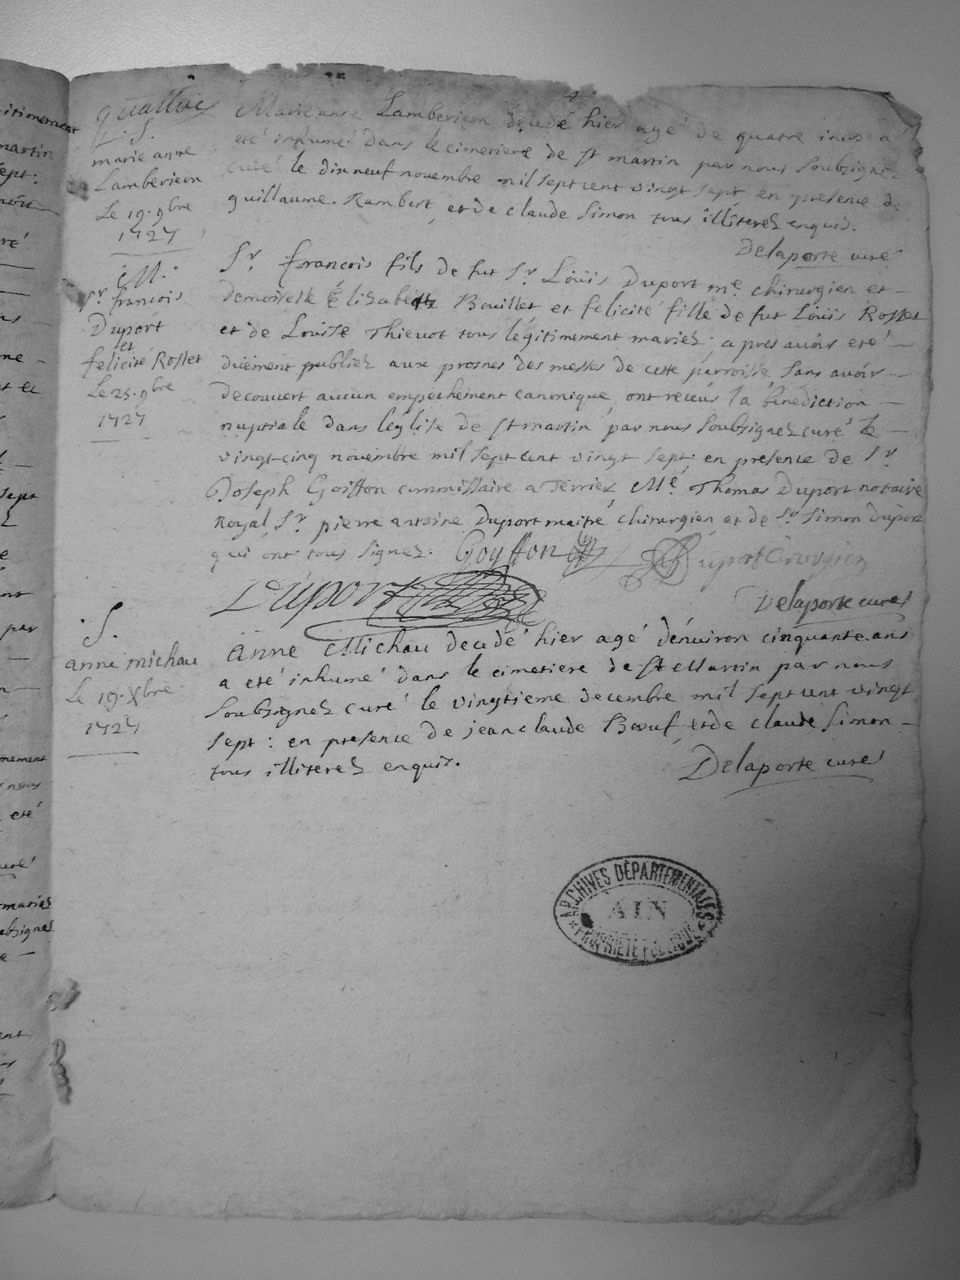 quattre
S.
marie anne
Lamberieon
Le 19. 9bre
1727
Marie anne Lamberieon décédé hier agé de quatre iours a
eté inhumé dans le cimetiere de st martin par nous soubsigné
curé le dixneuf novembre mil sept cent vingt sept en presence de
guillaume Rambert et de claude Simon tous illiterez enquis.
Delaporte curé
M.
Sr. francois
Duport
et
felicité Rosset
Le 25. 9bre
1727
Sr. francois fils de fut Sr. Loüis Duport me. chirurgien et
demoiselle Elisabeth Bouillet et felicité fille de fut Loüis Rosset
et de Louise Thievot tous légitimement mariez; apres avoir eté
düement publiez aux prosnes des messes de cette parroisse sans avoir
decouvert aucun empechement canonique, ont receus la bénediction
nuptiale dans léglise de st martin par nous soubsignez curé le
vingt cinq novembre mil sept cent vingt sept; en presence de Sr.
Joseph Goiffon commissaire a Terrier Me. Thomas Duport notaire
Royal Sr. pierre antoine Duport maitre chirurgien et de Sr. Simon Duport
qui ont tous signez. Goyffon
Duport Chirurgien
Duport
Delaporte curé
S.
anne michau
Le 19. Xbre
1727
Anne Michau decedé hier agé dénviron cinquante ans
a eté inhumé dans le cimetiere de St Martin par nous
soubsignez curé le vingtieme decembre mil sept cent vingt
sept: en presence de jean claude Bœuf et de claude Simon
tous illiterez enquis.
Delaporte curé
ARCHIVES DÉPARTEMENTALES
AIN
PROPRIÉTÉ PUBLIQUE